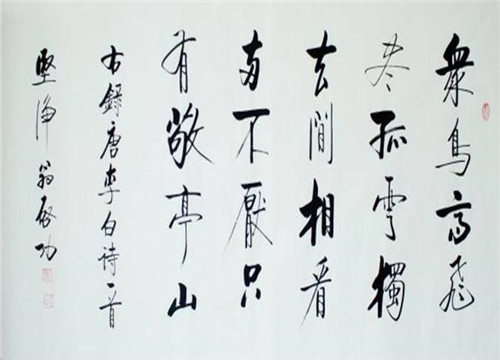 眾鳥高飛
盡孤雲獨
去閒相看
兩不厭只
有敬亭山
右錄唐李白诗一首
堅淨翁啓功